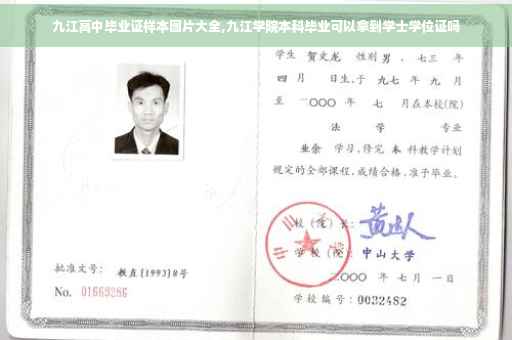 九江高中毕业证样本图片大全,九江学院本科毕业可以拿到学士学位证吗
学生 贺文龙 性别 男 、七三 年
四 月 日生,于 九七 年 九 月
至 二〇〇〇 年 七 月在本校(院)
法 学 专业
业余 学习,修完 本 科教学计划
规定的全部课程,成绩合格,准予毕业。
校 (院) 长:
学 校 (院): 中山大学
二〇〇〇 年 七 月 一 日
学校编号: 0032482
批准文号: 教直(1993)8号
No. 01669286